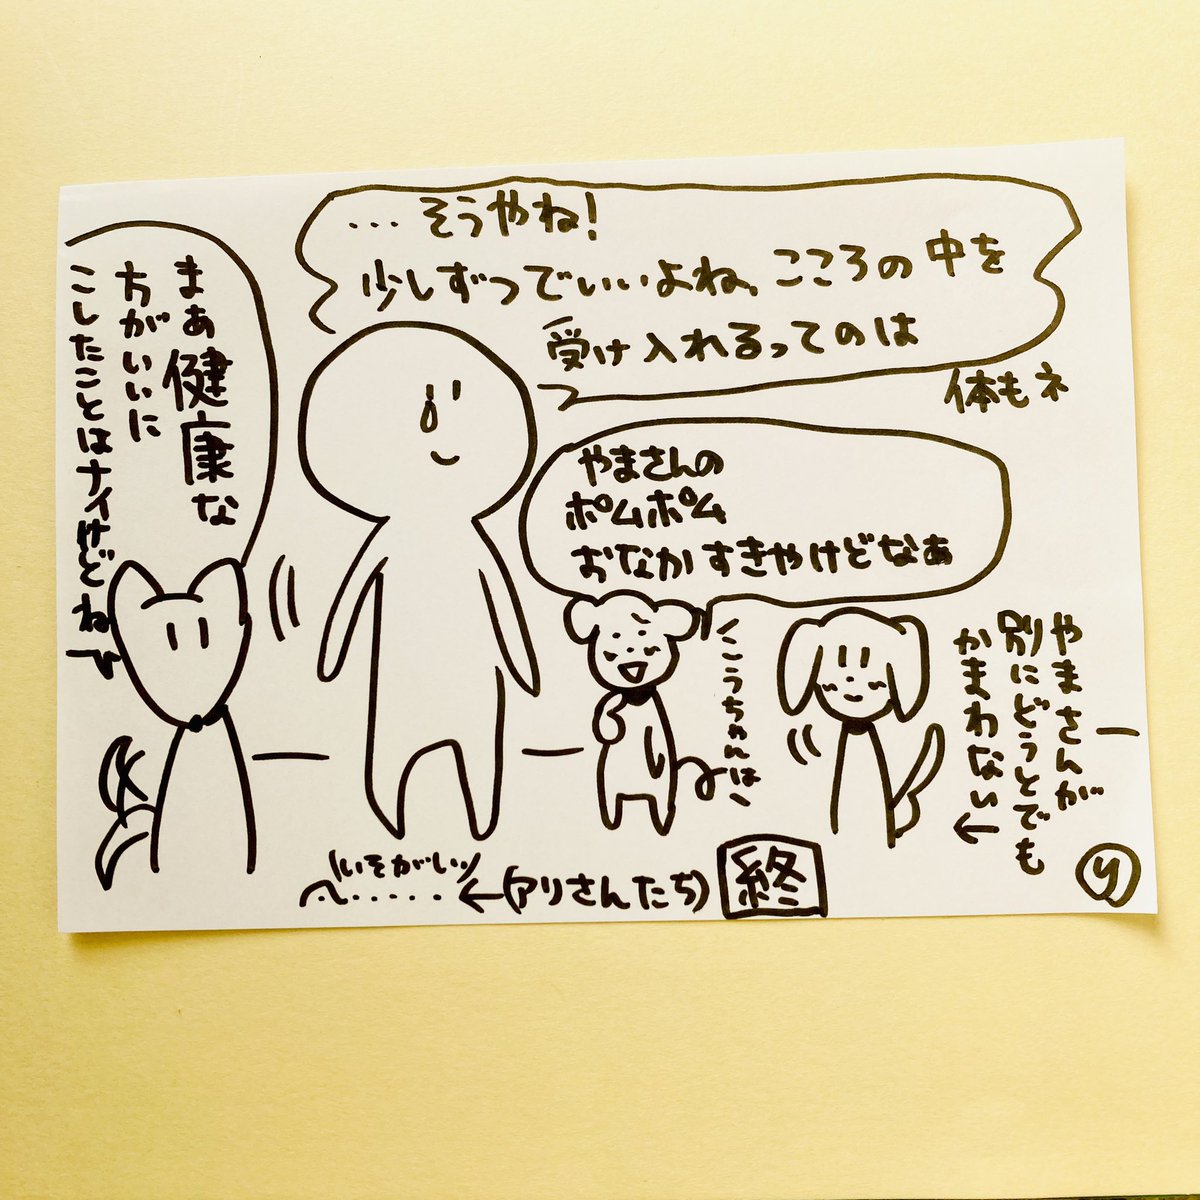 …そうやね!
少しずつでいいよね、こころの中を
受け入れるってのは
体もネ
まぁ健康な
方がいいに
こしたことはナイけどね
やまさんの
ポムポム
おなかすきやけどなぁ
こうちゃんは
やまさんが
別にどうとでも
かまわない
いそがしい
(アリさんたち)
終
y